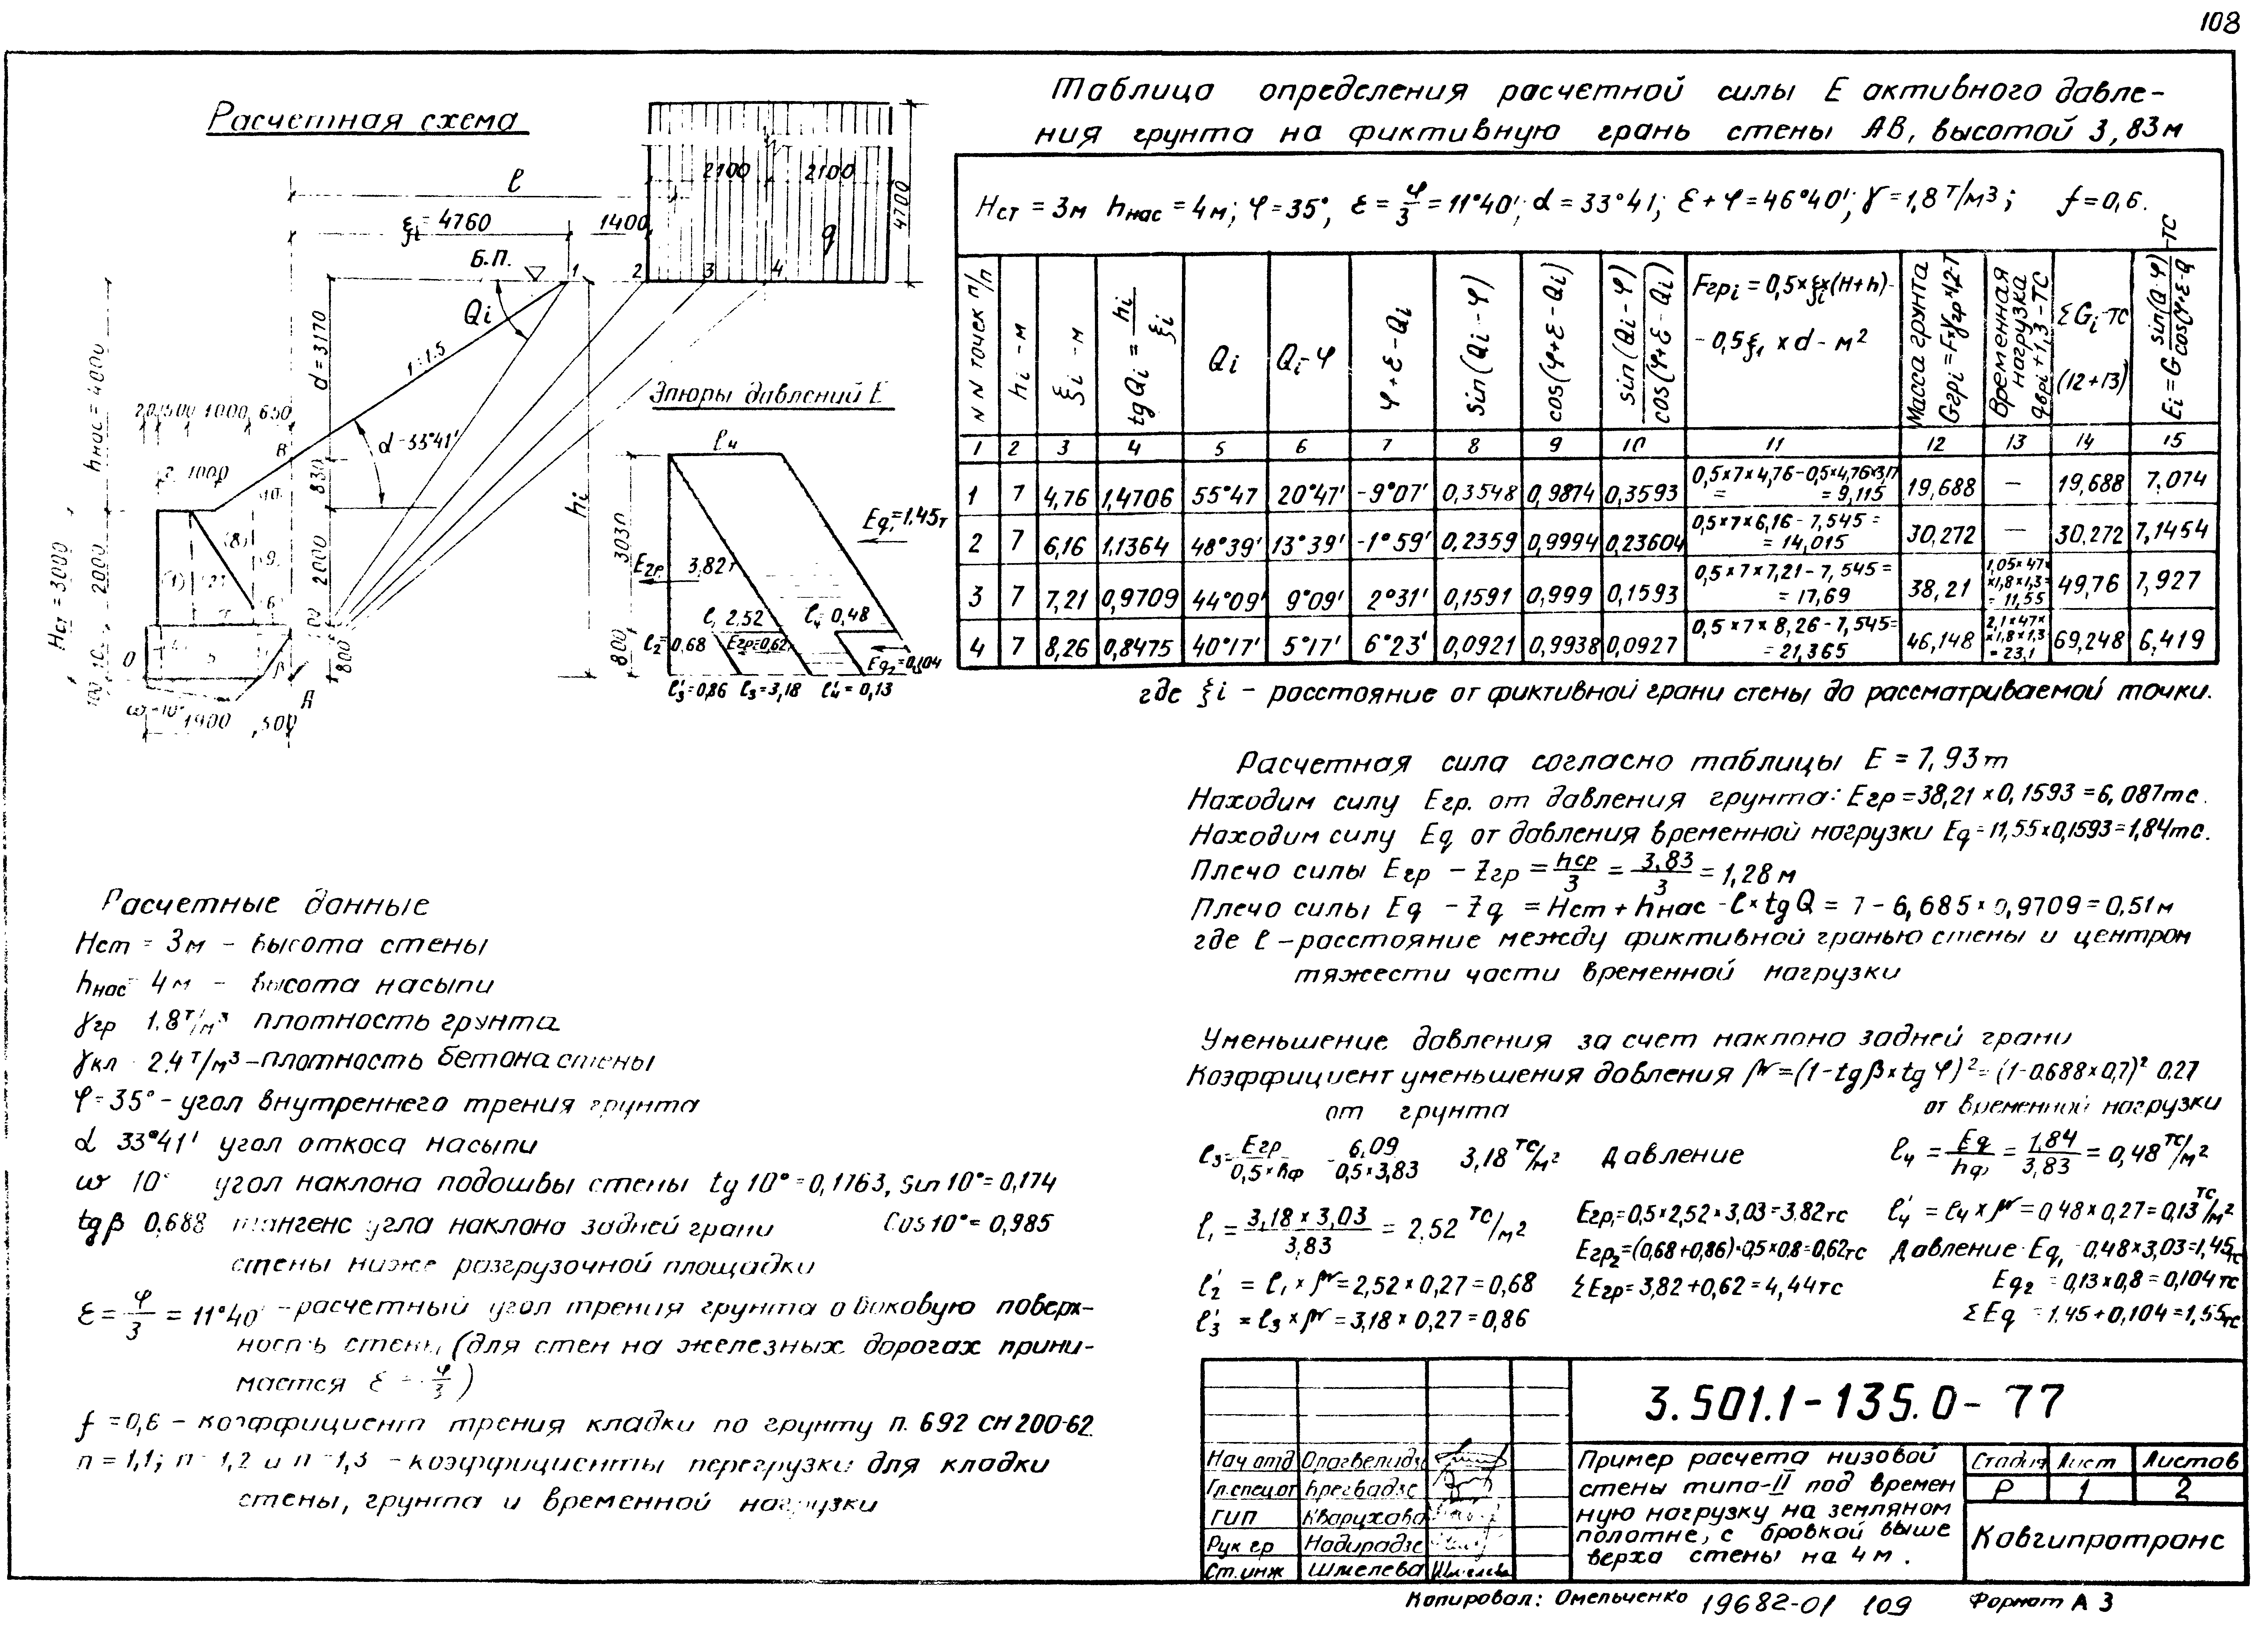 108
Расчетная схема
ℓ
ξi = 4760 1400
2100 2100
4700
q
Б.П.
1 2 3 4
Qi
d = 3170
1:1.5
hнас = 4000
500 1000 650
B
d-33°41'
1000
830
hi
Нст = 3000
2000
2000
800
О
А
ω-10°
1900 500
Эпюры давлений Е
ℓч
3030
Eq₁=1.45т
Eгр. 3,82т
ℓ₁ 2.52 ℓч = 0,48
ℓ'₂=0,68 Егр=0,62
Eq₂=0,104
800
ℓ'₃=0,86 ℓ₃=3,18 ℓ'ч = 0,13
Таблица определения расчетной силы Е активного давле-
ния грунта на фиктивную грань стены АВ, высотой 3,83м
Нст = 3м hнас = 4м; φ=35°, ε = φ/3 = 11°40'; d = 33°41; ε+φ = 46°40'; γ = 1,8 т/м³; f=0,6.
N N точек п/п
hi - м
ξi - м
tgQi = hi/ξi
Qi
Qi-φ
φ+ε-Qi
sin(Qi-φ)
cos(φ+ε-Qi)
sin(Qi-φ)/cos(φ+ε-Qi)
Fгрi = 0,5×ξi×(Н+h)-
- 0,5ξ₁ × d - м²
Масса грунта
Временная нагрузка qврi+1,3-ТС
ΣGi-ТС
(12+13)
1 2 3 4 5 6 7 8 9 10 11 12 13 14 15
1 7 4,76 1,4706 55°47 20°47' -9°07' 0,3548 0,9874 0,3593 0,5×7×4,76-0,5×4,76×3,17 = = 9,115 19,688 — 19,688 7,074
2 7 6,16 1,1364 48°39' 13°39' -1°59' 0,2359 0,9994 0,23604 0,5×7×6,16-7,545 = = 14,015 30,272 — 30,272 7,1454
3 7 7,21 0,9709 44°09' 9°09' 2°31' 0,1591 0,999 0,1593 0,5×7×7,21-7,545 = = 17,69 38,21 1,05×47× ×1,8×1,3= = 11,55 49,76 7,927
4 7 8,26 0,8475 40°17' 5°17' 6°23' 0,0921 0,9938 0,0927 0,5×7×8,26-7,545= = 21,365 46,148 2,1×47× ×1,8×1,3 = 23,1 69,248 6,419
где ξi - расстояние от фиктивной грани стены до рассматриваемой точки.
Расчетная сила согласно таблицы Е = 7,93т
Находим силу Егр. от давления грунта: Егр = 38,21 × 0,1593 = 6,087тс.
Находим силу Eq от давления временной нагрузки Eq = 11,55×0,1593=1,84тс.
Плечо силы Егр - Zгр = hср/3 = 3,83/3 = 1,28 м
Плечо силы Eq - Zq = Нст + hнас - ℓ × tgQ = 7 - 6,685 × 0,9709 = 0,51м
где ℓ - расстояние между фиктивной гранью стены и центром
тяжести части временной нагрузки
Уменьшение давления за счет наклона задней грани
Коэффициент уменьшения давления μ=(1-tgβ×tgφ)²=(1-0.688×0,7)² 0.27
от грунта от временной нагрузки
ℓ₃ = Егр/0,5×hф = 6,09/0,5×3,83 3,18 тс/м² Давление ℓч = Eq/hф = 1,84/3,83 = 0,48 тс/м²
ℓ₁ = 3,18 × 3,03/3,83 = 2,52 тс/м² Егр₁=0,5×2,52×3,03=3,82тс ℓ'ч = ℓч × μ = 0,48×0,27=0,13 тс/м²
Егр₂=(0,68+0,86)×0,5×0,8=0,62тс Давление Eq₁ 0.48×3,03=1,45тс
ℓ'₂ = ℓ₁ × μ = 2,52 × 0,27 = 0,68 ΣЕгр=3,82+0,62=4,44тс Eq₂ = 0,13×0,8=0,104тс
ℓ'₃ = ℓ₃ × μ = 3,18 × 0,27 = 0,86 ΣEq = 1,45+0,104=1,55тс
Расчетные данные
Нст = 3м - высота стены
hнас = 4м - высота насыпи
γгр 1.8 т/м³ плотность грунта
γкл 2.4 т/м³ - плотность бетона стены
φ=35° - угол внутреннего трения грунта
d 33°41' угол откоса насыпи
ω 10° угол наклона подошвы стены tg 10° = 0,1763, Sin 10° = 0,174
tgβ 0,688 тангенс угла наклона задней грани Cos 10° = 0,985
стены ниже разгрузочной площадки
ε = φ/3 = 11°40' - расчетный угол трения грунта о боковую поверх-
ность стены (для стен на железных дорогах прини-
мается ε = φ/3)
f = 0,6 - коэффициент трения кладки по грунту п. 692 СН 200-62.
n = 1,1; n = 1,2 и n = 1,3 - коэффициенты перегрузки для кладки
стены, грунта и временной нагрузки
3.501.1-135.0-77
Нач отд
Гл.спец.от
ГИП
Рук гр Надирадзе
Ст. инж Шмелева
Пример расчета низовой
стены типа-II под времен
ную нагрузку на земляном
полотне, с бровкой выше
верха стены на 4 м.
Стадия Лист Листов
Р 1 2
Кавгипротранс
Копировал: Омельченко 19682-01 109 Формат А3